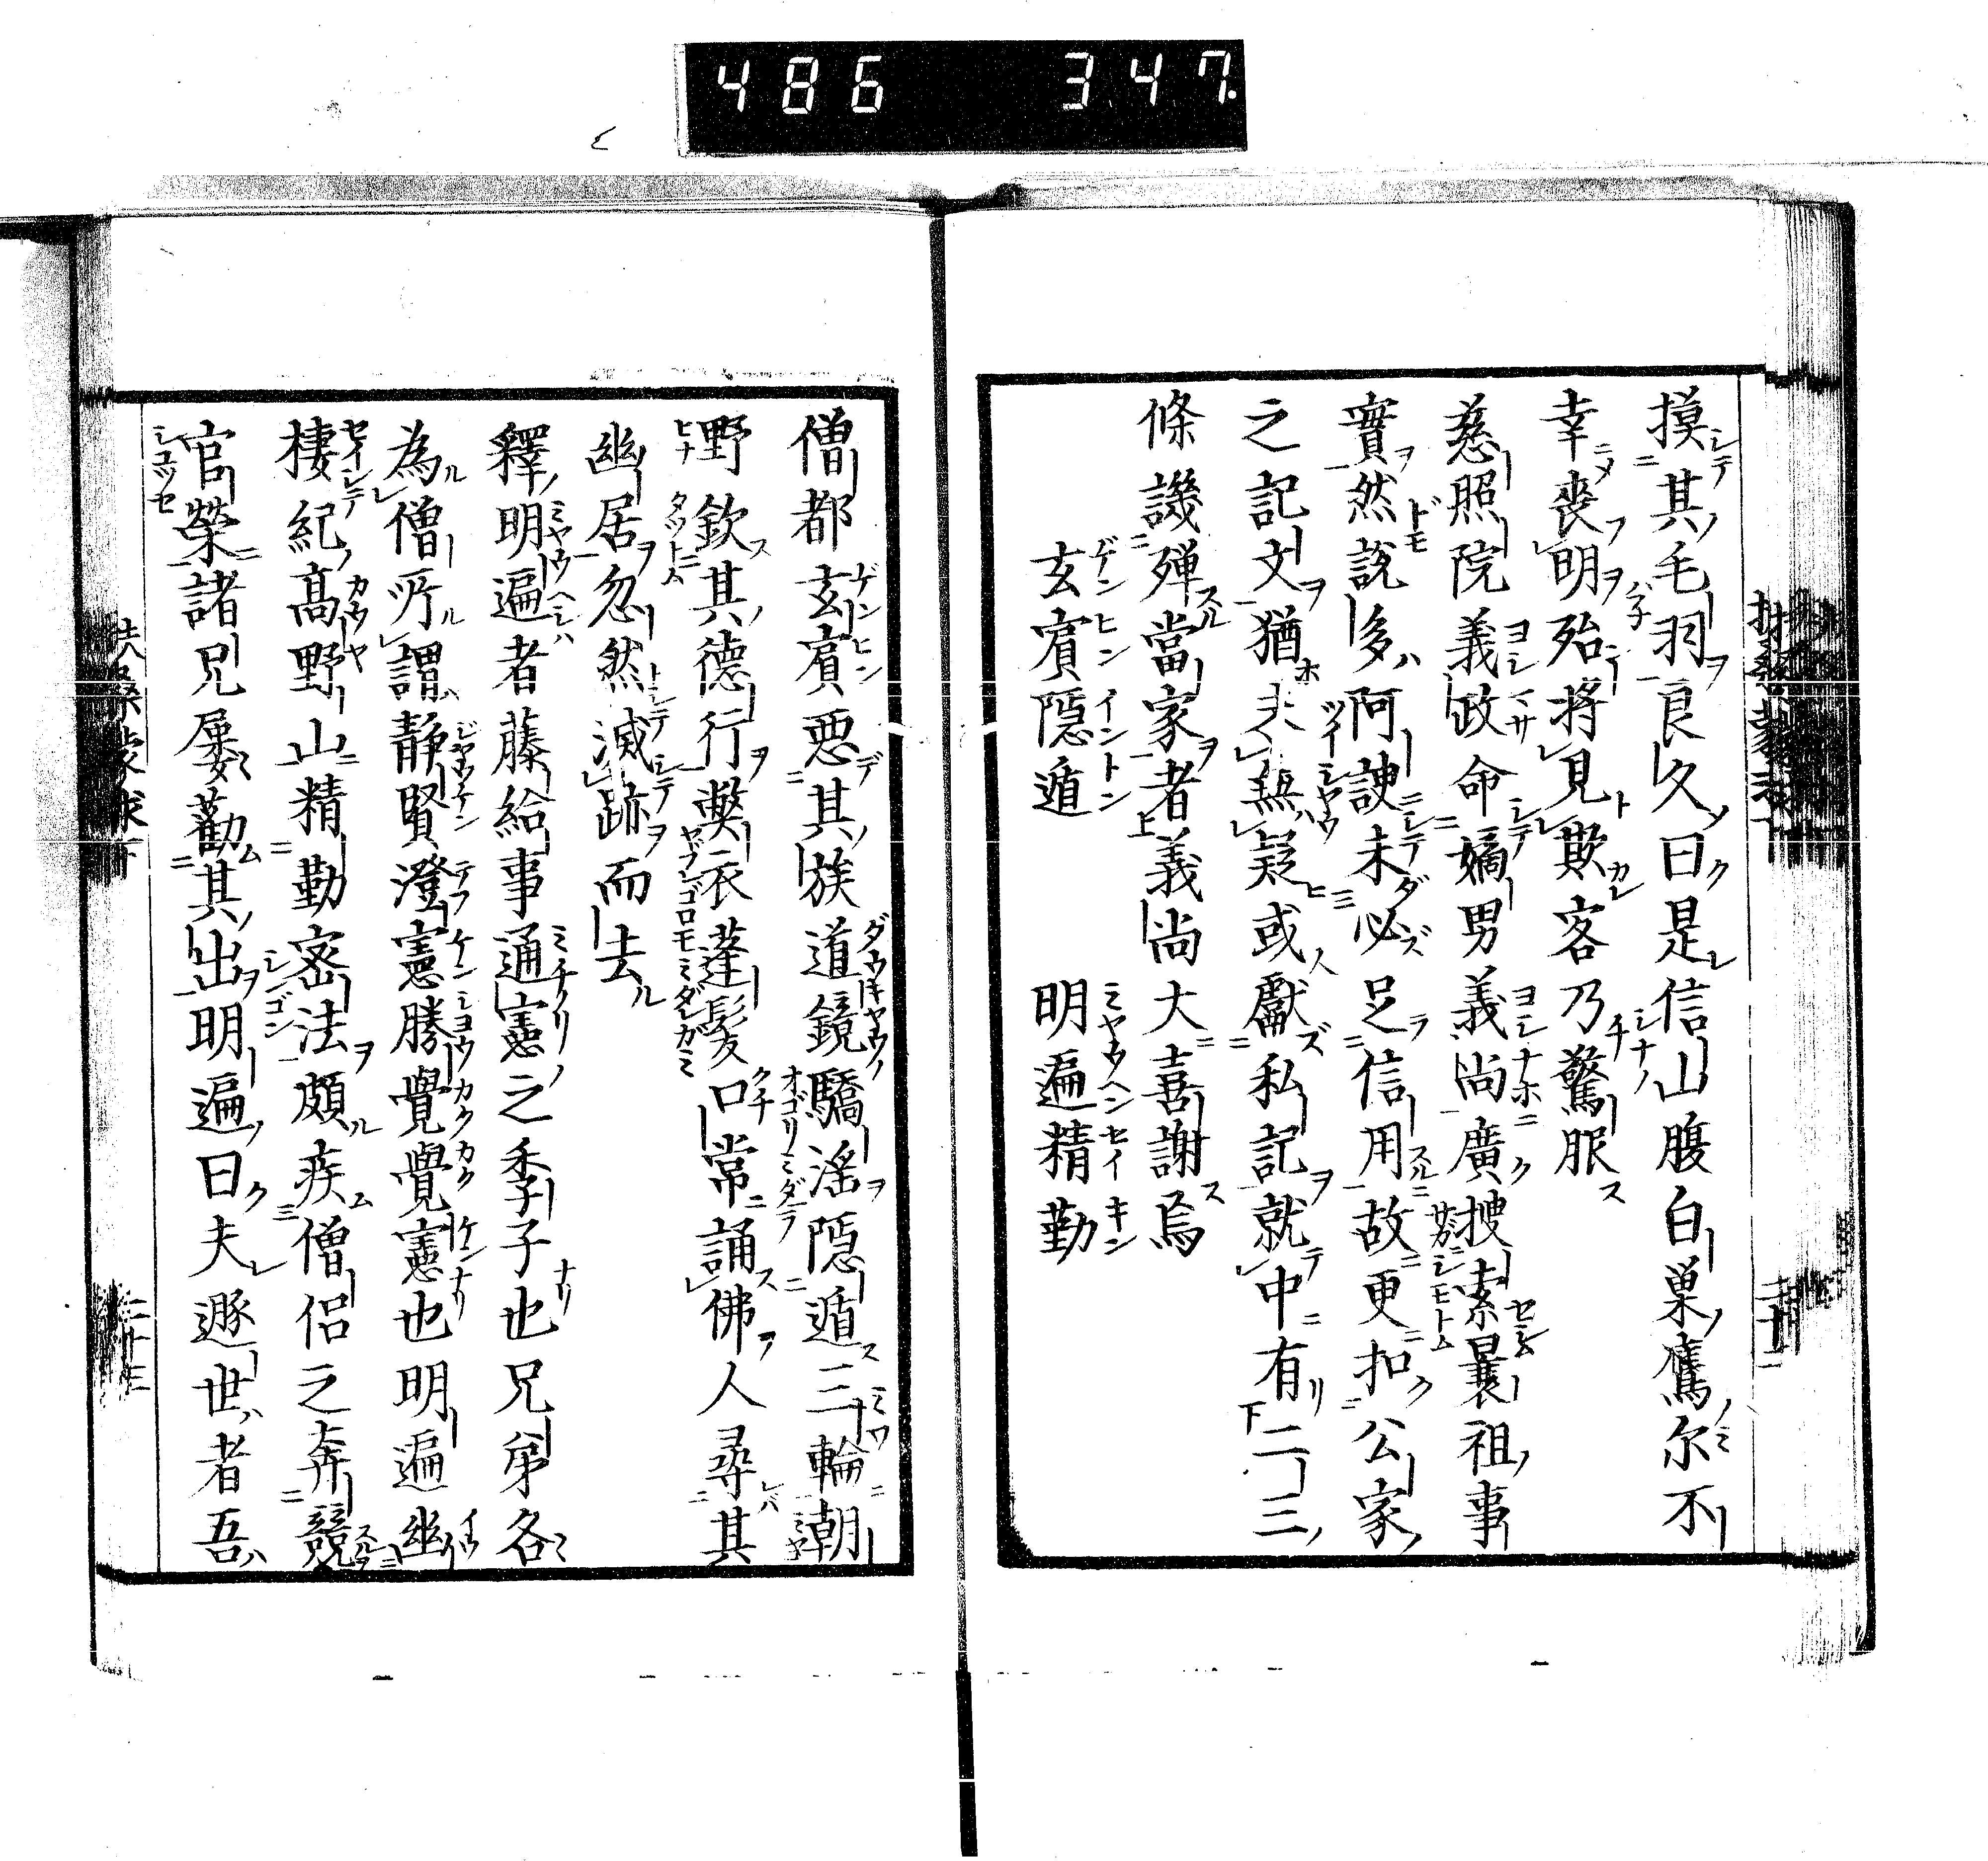 486 347.
摸其毛羽良久曰是信山腹白巣鷹尔不
幸喪明殆將見欺客乃驚服
慈照院義政命嫡男義尚廣搜索曩祖事
實然説多阿諛未必足信用故更扣公家
之記文猶夫無疑或獻私記就中有二三
條譏殫當家者義尚大喜謝焉
玄賓隱遁 明遍精勤
僧都玄賓惡其族道鏡驕滛隱遁三輪朝
野欽其德行獘衣蓬髮口常誦佛人尋其
幽居忽然滅跡而去
釋明遍者藤給事通憲之季子也兄弟各
為僧所謂静賢澄憲勝覺覺憲也明遍幽
棲紀高野山精勤密法頗疾僧侶之奔競
官榮諸兄屢勸其出明遍曰夫遯世者吾